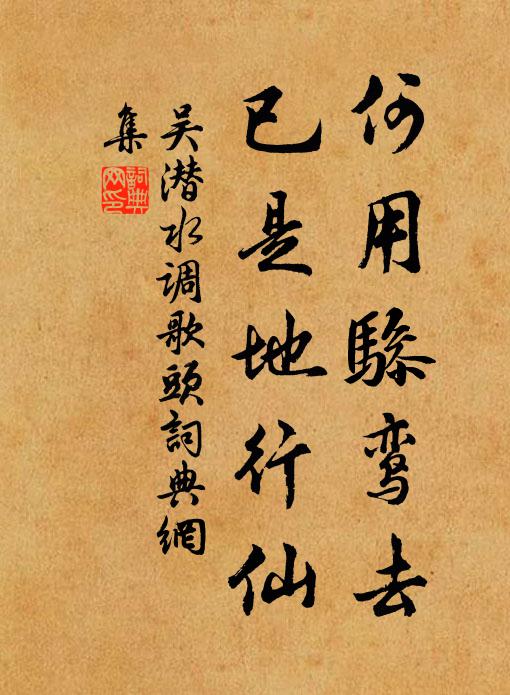 何用骖鸾去
已是地行仙
吴潜水调歌頭詞典網
集
詞典网印